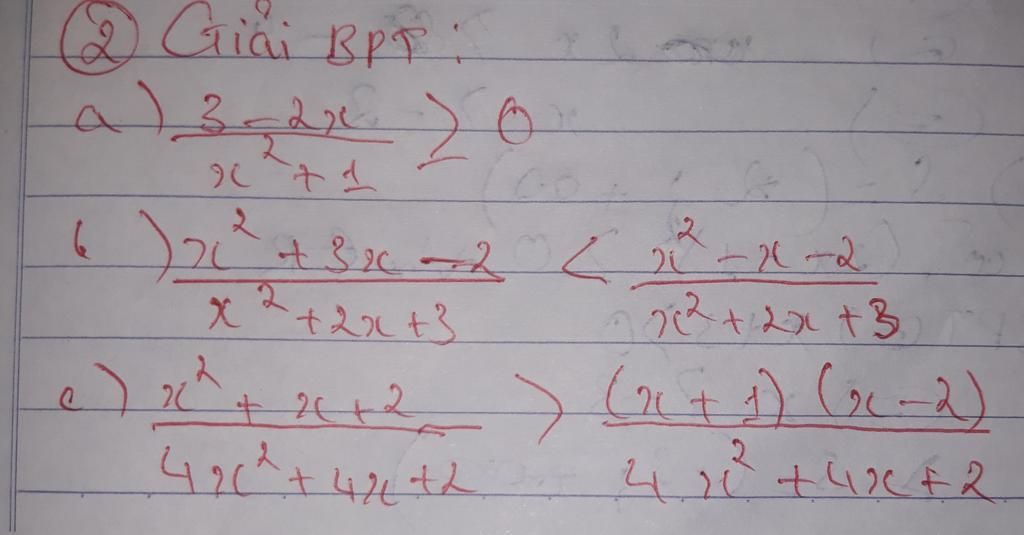 ② Giải BPT :
a) (3 - 2x)/(x² + 1) ≥ 0
b) (x² + 3x - 2)/(x² + 2x + 3) < (x² - x - 2)/(x² + 2x + 3)
c) (x² + x + 2)/(4x² + 4x + 2) > ((x + 1)(x - 2))/(4x² + 4x + 2)